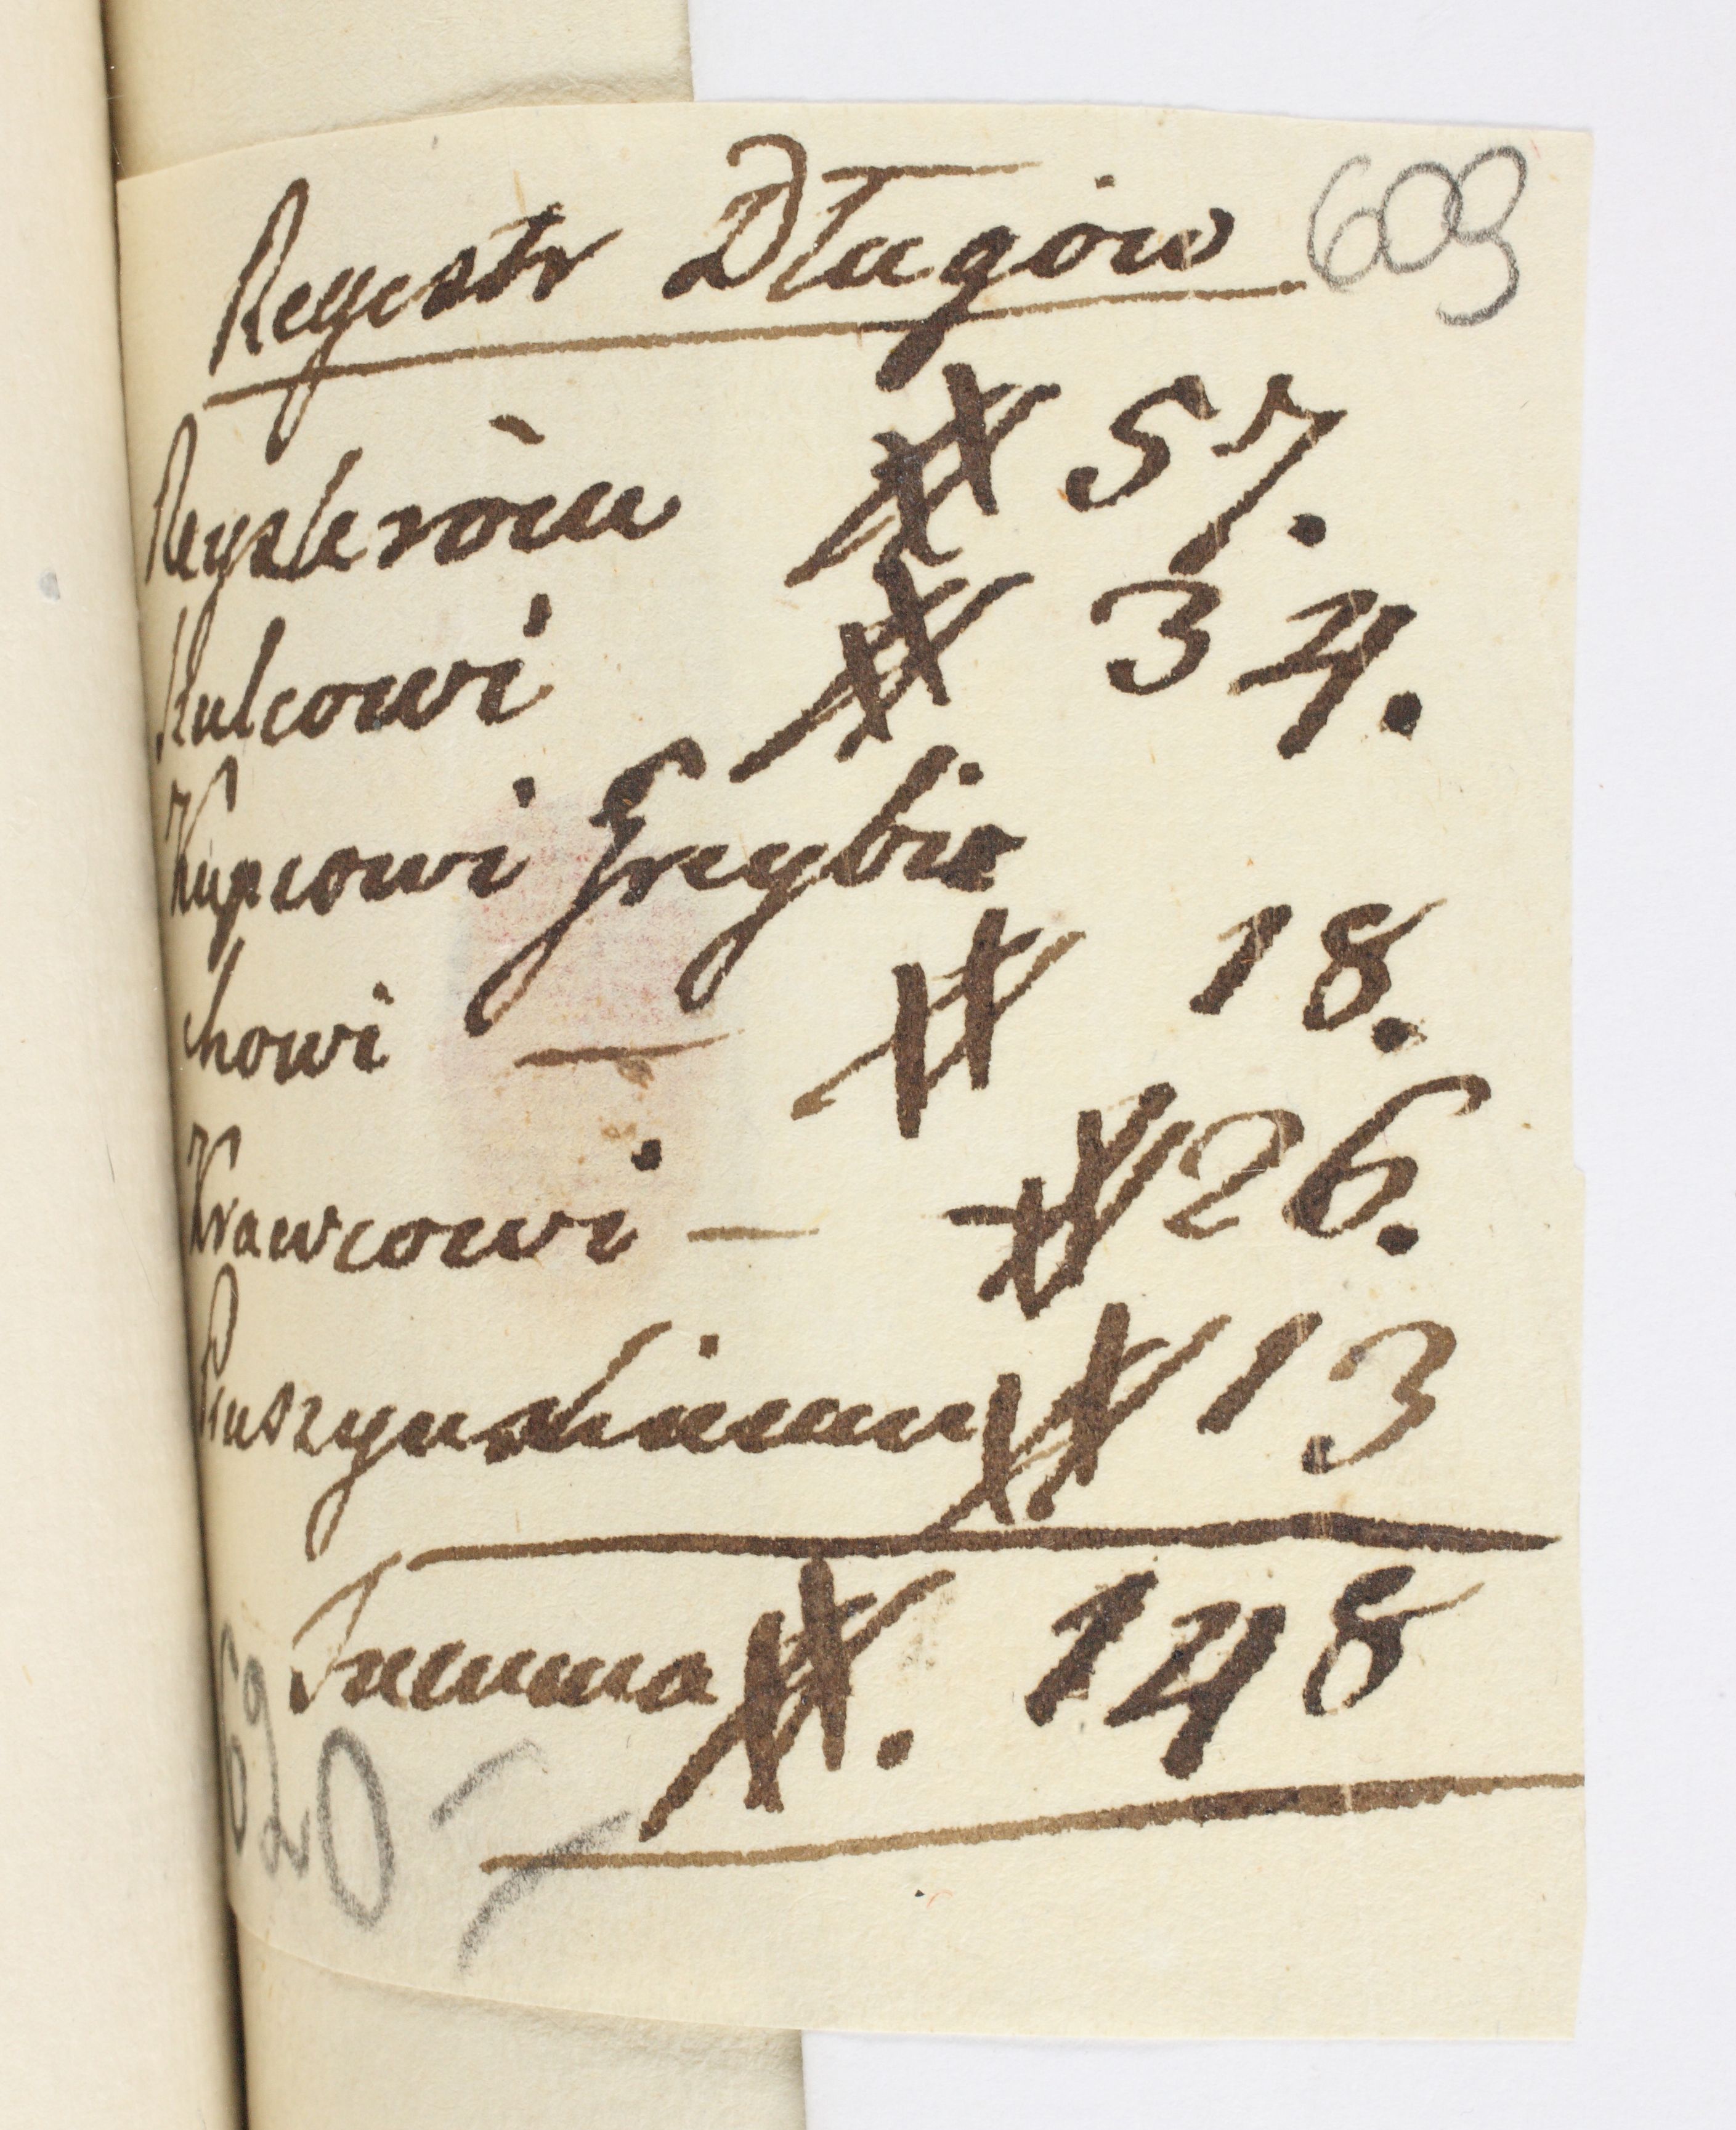 Regestr Długow 609
Reyslerowi # 57.
Kulcowi # 34.
Kupcowi Freybi
chowi — # 18.
Krawcowi — # 26.
Ruszynskiemu # 13
Summa #. 148
620 —